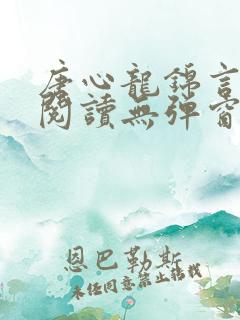 唐心龍錦言
閱讀無彈窗
恩巴勒斯
未经同意禁止转载